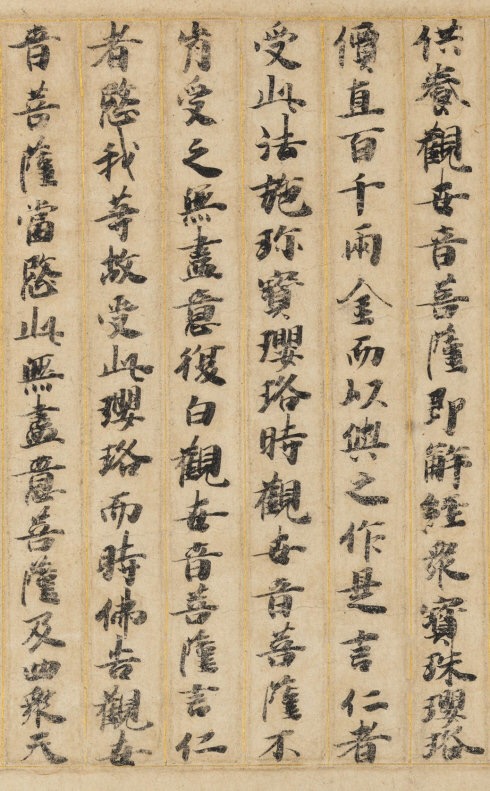 供養觀世音菩薩即解經衆寶珠瓔珞
價直百千兩金而以與之作是言仁者
受此法施珎寶瓔珞時觀世音菩薩不
肯受之無盡意復白觀世音菩薩言仁
者愍我等故受此瓔珞而時佛告觀世
音菩薩當愍此無盡意菩薩及四衆天